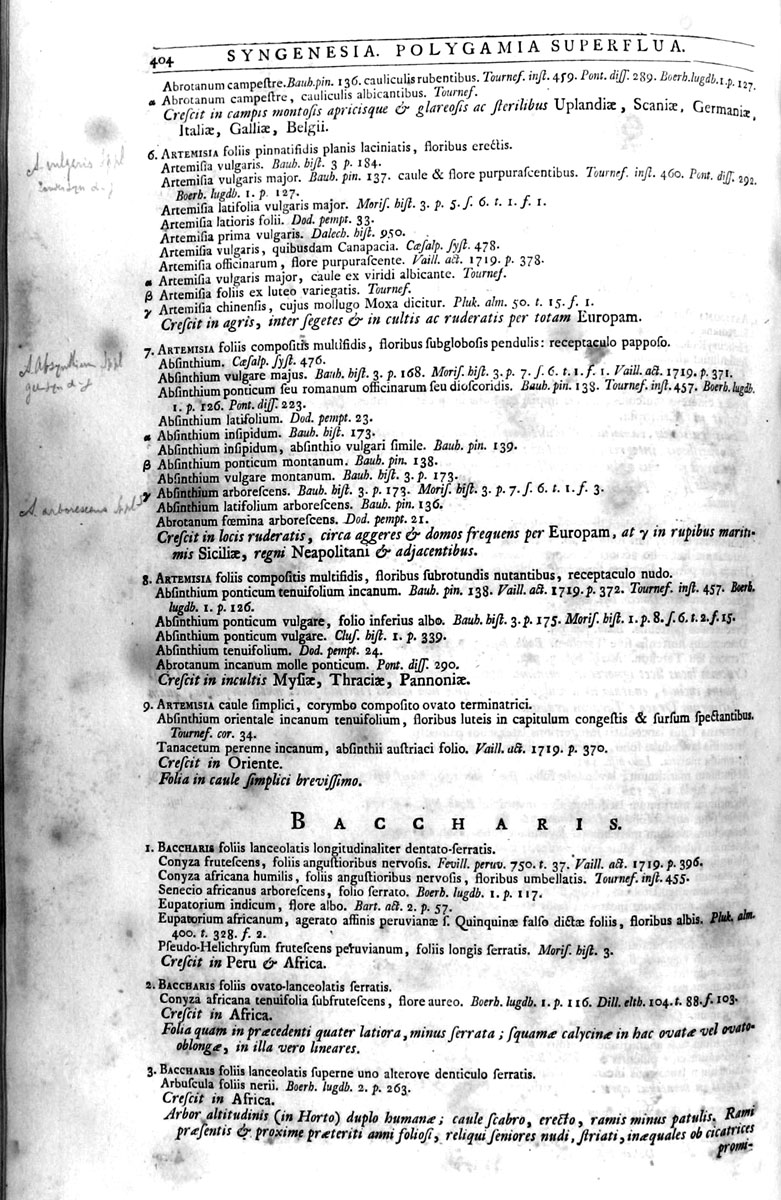 404 SYNGENESIA. POLYGAMIA SUPERFLUA.
Abrotanum campeſtre. Bauh. pin. 136. cauliculis rubentibus. Tournef. inſt. 459. Pont. diſſ. 289. Boerh. lugdb. 1. p. 127.
α Abrotanum campeſtre, cauliculis albicantibus. Tournef.
Creſcit in campis montoſis apricisque & glareoſis ac ſterilibus Uplandiæ, Scaniæ, Germaniæ,
Italiæ, Galliæ, Belgii.
6. ARTEMISIA foliis pinnatifidis planis laciniatis, floribus erectis.
Artemiſia vulgaris. Bauh. hiſt. 3 p. 184.
Artemiſia vulgaris major. Bauh. pin. 137. caule & flore purpuraſcentibus. Tournef. inſt. 460. Pont. diſſ. 292.
Boerh. lugdb. 1. p. 127.
A. vulgaris Sppl
Artemiſia latifolia vulgaris major. Moriſ. hiſt. 3. p. 5. ſ. 6. t. 1. f. 1.
Artemiſia latioris folii. Dod. pempt. 33.
Artemiſia prima vulgaris. Dalech. hiſt. 950.
Artemiſia vulgaris, quibusdam Canapacia. Cæſalp. ſyſt. 478.
Artemiſia officinarum, flore purpuraſcente. Vaill. act. 1719. p. 378.
α Artemiſia vulgaris major, caule ex viridi albicante. Tournef.
β Artemiſia foliis ex luteo variegatis. Tournef.
γ Artemiſia chinenſis, cujus mollugo Moxa dicitur. Pluk. alm. 50. t. 15. f. 1.
Creſcit in agris, inter ſegetes & in cultis ac ruderatis per totam Europam.
7. ARTEMISIA foliis compoſitis multifidis, floribus ſubgloboſis pendulis: receptaculo pappoſo.
A. Absynthium Sppl
Abſinthium. Cæſalp. ſyſt. 476.
Abſinthium vulgare majus. Bauh. hiſt. 3. p. 168. Moriſ. hiſt. 3. p. 7. ſ. 6. t. 1. f. 1. Vaill. act. 1719. p. 371.
Abſinthium ponticum ſeu romanum officinarum ſeu dioſcoridis. Bauh. pin. 138. Tournef. inſt. 457. Boerh. lugdb.
1. p. 126. Pont. diſſ. 223.
Abſinthium latifolium. Dod. pempt. 23.
α Abſinthium inſipidum. Bauh. hiſt. 173.
Abſinthium inſipidum, abſinthio vulgari ſimile. Bauh. pin. 139.
β Abſinthium ponticum montanum. Bauh. pin. 138.
Abſinthium vulgare montanum. Bauh. hiſt. 3. p. 173.
γ Abſinthium arboreſcens. Bauh. hiſt. 3. p. 173. Moriſ. hiſt. 3. p. 7. ſ. 6. t. 1. f. 3.
A. arborescens Sppl
Abſinthium latifolium arboreſcens. Bauh. pin. 136.
Abrotanum fœmina arboreſcens. Dod. pempt. 21.
Creſcit in locis ruderatis, circa aggeres & domos frequens per Europam, at γ in rupibus mariti-
mis Siciliæ, regni Neapolitani & adjacentibus.
8. ARTEMISIA foliis compoſitis multifidis, floribus ſubrotundis nutantibus, receptaculo nudo.
Abſinthium ponticum tenuifolium incanum. Bauh. pin. 138. Vaill. act. 1719. p. 372. Tournef. inſt. 457. Boerh.
lugdb. 1. p. 126.
Abſinthium ponticum vulgare, folio inferius albo. Bauh. hiſt. 3. p. 175. Moriſ. hiſt. 1. p. 8. ſ. 6. t. 2. f. 15.
Abſinthium ponticum vulgare. Cluſ. hiſt. 1. p. 339.
Abſinthium tenuifolium. Dod. pempt. 24.
Abrotanum incanum molle ponticum. Pont. diſſ. 290.
Creſcit in incultis Myſiæ, Thraciæ, Pannoniæ.
9. ARTEMISIA caule ſimplici, corymbo compoſito ovato terminatrici.
Abſinthium orientale incanum tenuifolium, floribus luteis in capitulum congeſtis & ſurſum ſpectantibus.
Tournef. cor. 34.
Tanacetum perenne incanum, abſinthii auſtriaci folio. Vaill. act. 1719. p. 370.
Creſcit in Oriente.
Folia in caule ſimplici breviſſimo.
BACCHARIS.
1. BACCHARIS foliis lanceolatis longitudinaliter dentato-ſerratis.
Conyza fruteſcens, foliis anguſtioribus nervoſis. Fevill. peruv. 750. t. 37. Vaill. act. 1719. p. 396.
Conyza africana humilis, foliis anguſtioribus nervoſis, floribus umbellatis. Tournef. inſt. 455.
Senecio africanus arboreſcens, folio ſerrato. Boerh. lugdb. 1. p. 117.
Eupatorium indicum, flore albo. Bart. act. 2. p. 57.
Eupatorium africanum, agerato affinis peruvianæ ſ. Quinquinæ falſo dictæ foliis, floribus albis. Pluk. alm.
400. t. 328. f. 2.
Pſeudo-Helichryſum fruteſcens peruvianum, foliis longis ſerratis. Moriſ. hiſt. 3.
Creſcit in Peru & Africa.
2. BACCHARIS foliis ovato-lanceolatis ſerratis.
Conyza africana tenuifolia ſubfruteſcens, flore aureo. Boerh. lugdb. 1. p. 116. Dill. elth. 104. t. 88. f. 103.
Creſcit in Africa.
Folia quam in præcedenti quater latiora, minus ſerrata; ſquamæ calycinæ in hac ovatæ vel ovato-
oblongæ, in illa vero lineares.
3. BACCHARIS foliis lanceolatis ſuperne uno alterove denticulo ſerratis.
Arbuſcula foliis nerii. Boerh. lugdb. 2. p. 263.
Creſcit in Africa.
Arbor altitudinis (in Horto) duplo humanæ; caule ſcabro, erecto, ramis minus patulis. Rami
præſentis & proxime præteriti anni folioſi, reliqui ſeniores nudi, ſtriati, inæquales ob cicatrices
promi-